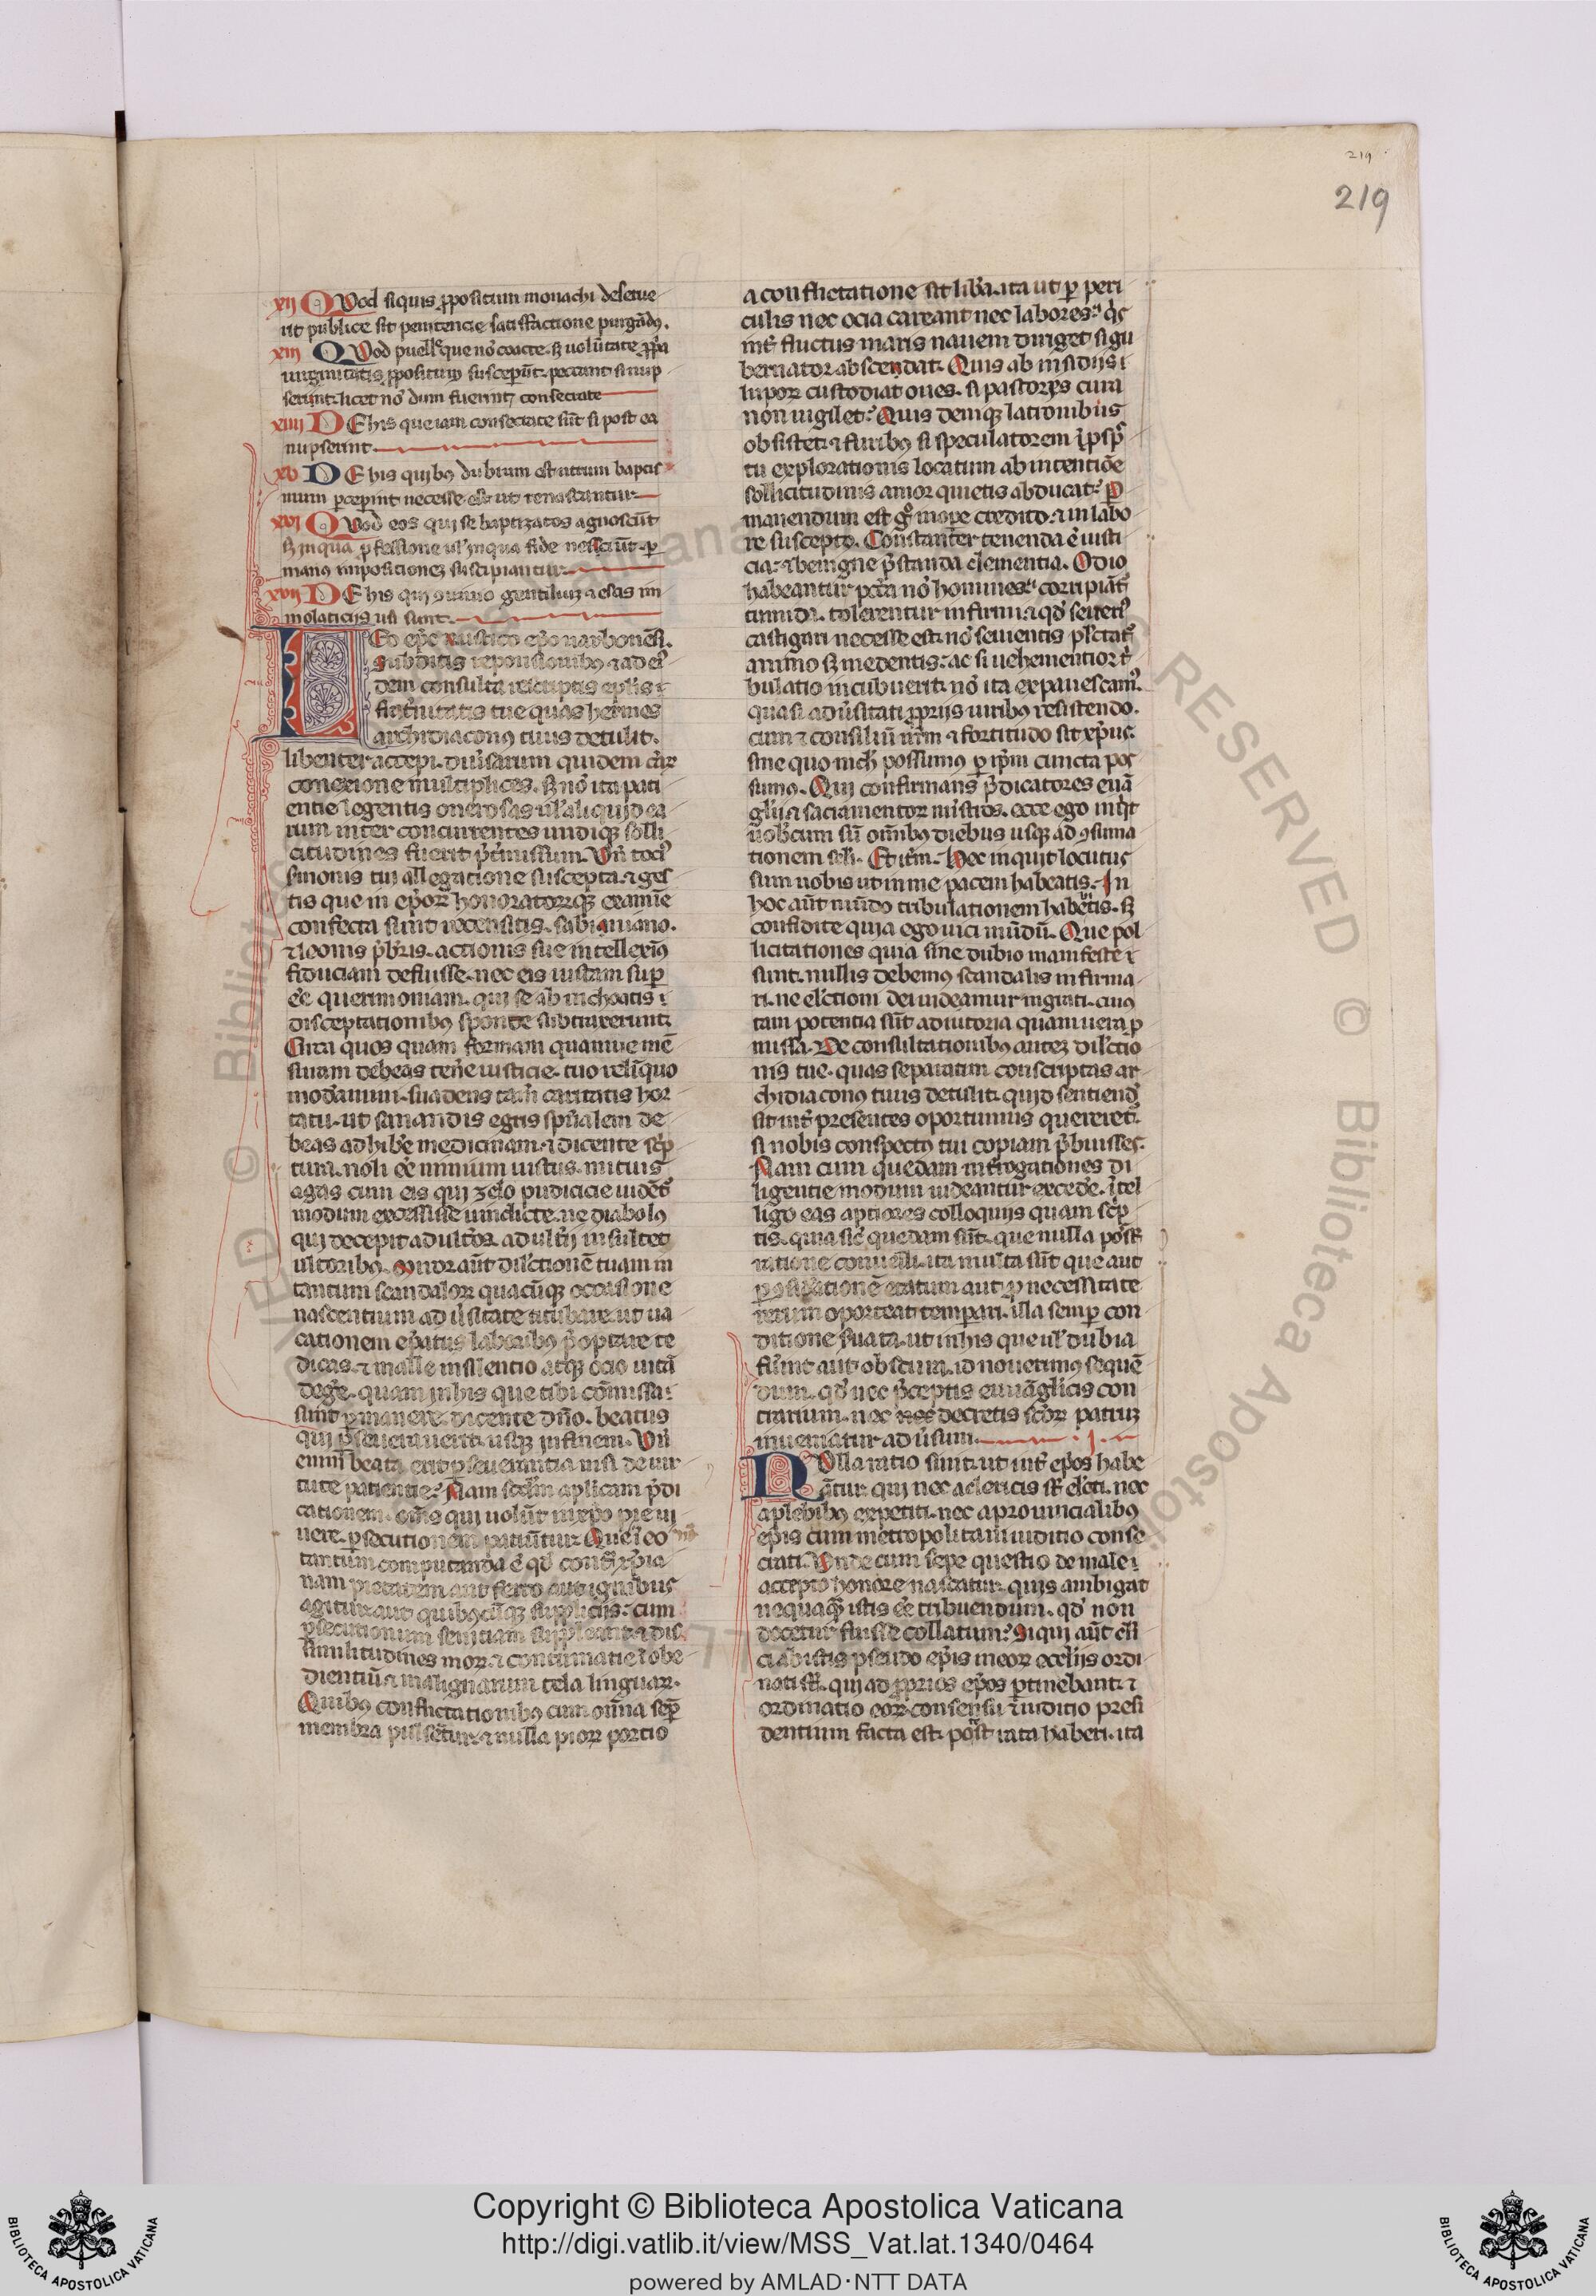 219
219
xii QVod siquis propositum monachi deserue
rit publice sit penitencie satisfactione purgandus.
xiii QVod puelle que non coacte. sed uoluntate propria
uirginitatis propositum susceperunt. peccant si nup
serint. licet non dum fuerint consecrate
xiiii DE his que iam consecrate sunt si post ea
nupserint.
xv DE his quibus dubium est utrum baptis
mum perceperint necesse est ut renascantur.
xvi QVod eos qui se baptizatos agnoscunt
sed in qua professione uel in qua fide nesciunt. per
manus impositionem suscipiantur.
xvii DE his qui conuiuio gentilium et escis im
molaticijs usi sunt.
LEo episcopus rustico episcopo narbonensi.
Subditis responsionibus et ad eius
dem consulta rescriptis epistolas
fraternitatis tue quas hermes
archidiaconus tuus detulit.
libenter accepi. diuersarum quidem causarum
conexione multiplices. sed non ita pati
entie legentis onerosas ut aliquid ea
rum inter concurrentes undique solli
citudines fuerit pretermissum. Vnde tocius
sermonis tui allegatione suscepta. et ges
tis que in episcoporum honoratorumque examine
confecta sunt recensitis. sabiniano.
et leonis presbiteris. actionis sue intelleximus
fiduciam defuisse. nec eis iustam super
esse querimoniam. qui se ab inchoatis
disceptationibus sponte subtraxerunt.
Circa quos quam formam quamue men
suram debeas tenere iusticie. tuo relinquo
moderamini. suadens tamen caritatis hor
tatu. ut sanandis egris spiritualem de
beas adhibere medicinam. et dicente scrip
tura. noli esse nimium iustus. mitius
agas cum eis qui zelo pudicicie uidentur
modum excessisse uindicte. ne diabolus
qui decepit adulteros. adulterij insultet
ultoribus. Miror autem dilectionem tuam in
tantum scandalorum quacumque occasione
nascentium aduersitate titubare. ut ua
cationem episcopatus laboribus preoptare te
dicas. et malle in silentio atque ocio uitam
degere. quam in his que tibi commissa
sunt permanere. dicente domino. beatus
qui perseuerauerit usque in finem. Vnde
enim beata erit perseuerantia nisi de uir
tute patientie? Nam secundum apostolicam predi
cationem. omnes qui uolunt in christo pie ui
uere. persecutionem patiuntur. Que non eo
tantum computanda est quod contra christia
nam pietatem aut ferro aut ignibus
agitur. aut quibuscumque supplicijs. cum
persecutionum seuitiam suppleant. et dis
similitudines morum. et contumatie inobe
dientium et malignarum tela linguarum.
Quibus conflictationibus cum omnia semper
membra pulsentur. et nulla piorum portio
a conflictatione sit libera. ita ut per peri
culis nec ocia careant nec labores. quis
inter fluctus maris nauem diriget si gu
bernator abscendat. Quis ab insidijs
luporum custodiat oues. si pastorys cura
non uigilet? Quis denique latronibus
obsistet. et furibus si speculatorem in prospec
tu explorationis locatum ab intentione
sollicitudinis amor quietis abducat? Per
manendum est ergo in opere credito. et in labo
re suscepto. Constanter tenenda est iusti
cia. et benigne prestanda clementia. Odio
habeantur peccata non homines. corripiantur
tumida. tolerentur infirmi. et quod seuerius
castigari necesse est. non seuientis plectatur
animo sed medentis. ac si uehementior tri
bulatio incubuerit. non ita expauescamus.
quasi aduersitati proprijs uiribus resistendo.
cum et consilium nostrum et fortitudo sit christus.
sine quo nichil possumus per ipsum cuncta pos
sumus. Qui confirmans predicatores euan
gelij et sacramentorum ministros. ecce ego inquit
uobiscum sum omnibus diebus usque ad consuma
tionem seculi. Et iterum. Hec inquit locutus
sum uobis ut in me pacem habeatis. In
hoc autem mundo tribulationem habebitis. sed
confidite quia ego uici mundum. Que pol
licitationes quia sine dubio manifeste
sunt. nullis debemus scandalis infirma
ri. ne electioni dei uideamur ingrati. cuius
tam potentia sunt adiutoria quam uera pro
missa. De consultationibus autem dilectio
nis tue. quas separatim conscriptas ar
chidiaconus tuus detulit. quid sentiendum
sit inter presentes oportunius quereretur.
si nobis conspectus tui copiam prebuisses.
Nam cum quedam interrogationes di
ligentie modum uideantur excedere. intel
ligo eas aptiores colloquijs quam scrip
tis. quia sicut quedam sunt. que nulla possunt
ratione conuelli. ita multa sunt que aut
pro consideratione etatum aut pro necessitate
rerum oporteat temperari. illa semper con
ditione seruata. ut in his que uel dubia
fuerint aut obscura. id nouerimus sequen
dum. quod nec preceptis euuangelicis con
trarium. nec decretis sanctorum patrum
inueniatur aduersum. . I .
NVlla ratio sinit. ut inter episcopos habe
antur qui nec a clericis sunt electi. nec
a plebibus expetiti. nec a prouincialibus
episcopis cum metropolitani iuditio conse
crati. Vnde cum sepe questio de male
accepto honore nascatur. quis ambigat
nequaquam istis esse tribuendum. quod non
docetur fuisse collatum? Siqui autem cleri
ci ab istis pseudo episcopis in eorum ecclesijs ordi
nati sunt. qui ad proprios episcopos pertinebant. et
ordinatio eorum consensu et iuditio presi
dentium facta est. potest rata haberi. ita
Copyright © Biblioteca Apostolica Vaticana
http://digi.vatlib.it/view/MSS_Vat.lat.1340/0464
powered by AMLAD·NTT DATA
BIBLIOTECA APOSTOLICA VATICANA
BIBLIOTECA APOSTOLICA VATICANA